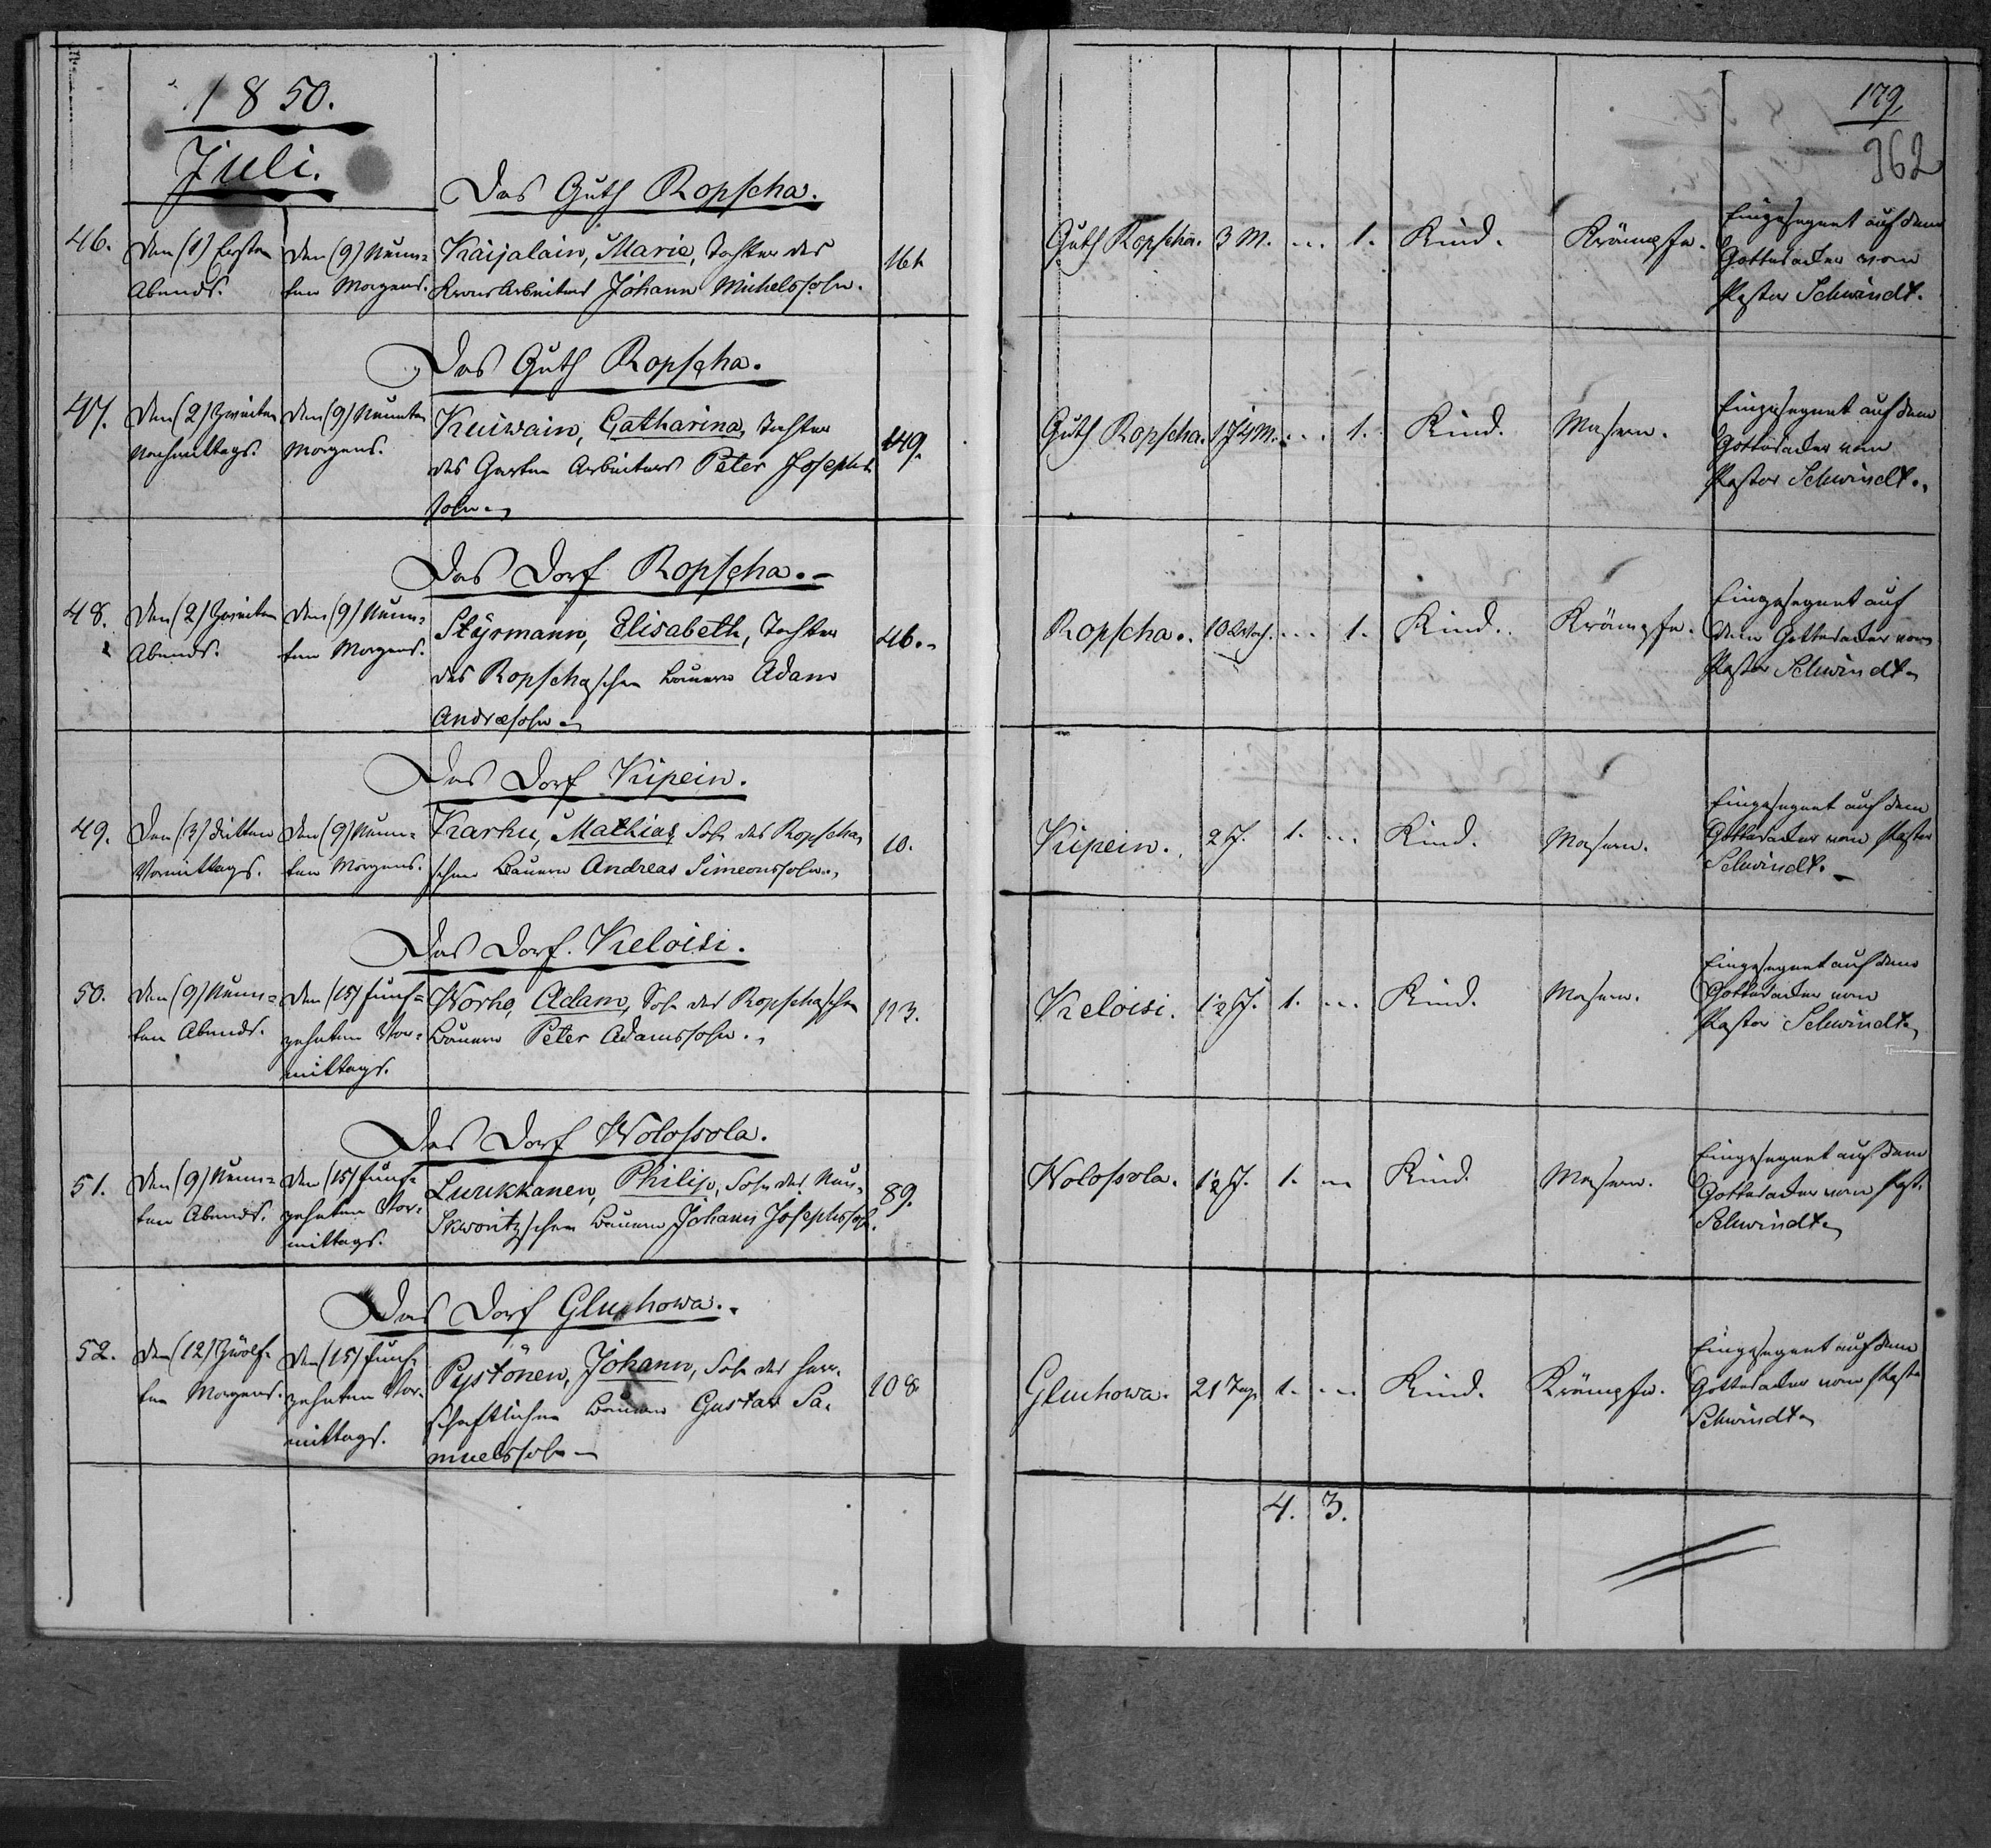 1850.
Juli.
Das Guth Ropscha.
46.
Den (1) Ersten
Abends.
Den (9) Neun=
ten Morgens.
Kaijalain, Maria, Tochter des
Kronsarbeiters Johann Michelssohn.
161.
Das Guth Ropscha.
47.
Den (2) Zweiten
Nachmittags.
Den (9) Neunten
Morgens.
Kuiwain, Catharina, Tochter
des Garten Arbeiters Peter Josephs
sohn.
149.
Das Dorf Ropscha.
48.
Den (2) Zweiten
Abends.
Den (9) Neun=
ten Morgens.
Styrmann, Elisabeth, Tochter
des Ropschaschen Bauern Adam
Andreæsohn.
46.
Das Dorf Kipein.
49.
Den (3) Dritten
Vormittags.
Den (9) Neun=
ten Morgens.
Karhu, Mathias, Sohn des Ropscha,
schen Bauern Andreas Simeonssohn.
10.
Das Dorf Keloisi.
50.
Den (9) Neun=
ten Abends.
Den (15) Funf=
zehnten Vor=
mittags.
Worho, Adam, Sohn des Ropschaschen
Bauern Peter Adamssohn.
113.
Das Dorf Wolossola.
51.
Den (9) Neun=
ten Abends.
Den (15) Funf=
zehnten Vor=
mittags.
Luukkanen, Philip, Sohn des Neu,
Skworitzschen Bauern Johann Josephssoh.
89.
Das Dorf Gluchowa.
52.
Den (12) Zwölf=
ten Morgens.
Den (15) Funf=
zehnten Vor=
mittags.
Pystönen, Johann, Sohn des Herr,
schaftlichen Bauern Gustav Sa,
muelssohn
108
179,
362
Guth Ropscha. 3 M. ... 1. Kind. Krämpfe.
Eingesegnet auf dem
Gottesacker vom
Pastor Schwindt.
Guth Ropscha. 1 J 4 M. ... 1. Kind. Masern.
Eingesegnet auf dem
Gottesacker vom
Pastor Schwindt.
Ropscha. 10 Woch. ... 1. Kind. Krämpfe.
Eingesegnet auf
dem Gottesacker vom
Pastor Schwindt.
Kipein. 2 J. 1. ... Kind. Masern.
Eingesegnet auf dem
Gottesacker vom Pastor
Schwindt.
Keloisi. 1½ J. 1. ... Kind. Masern.
Eingesegnet auf dem
Gottesacker vom
Pastor Schwindt.
Wolossola. 1½ J. 1. ... Kind. Masern.
Eingesegnet auf dem
Gottesacker vom Past.
Schwindt.
Gluchowa. 21 Tag. 1. ... Kind. Krämpfe.
Eingesegnet auf dem
Gottesacker vom Past.
Schwindt.
4. 3.